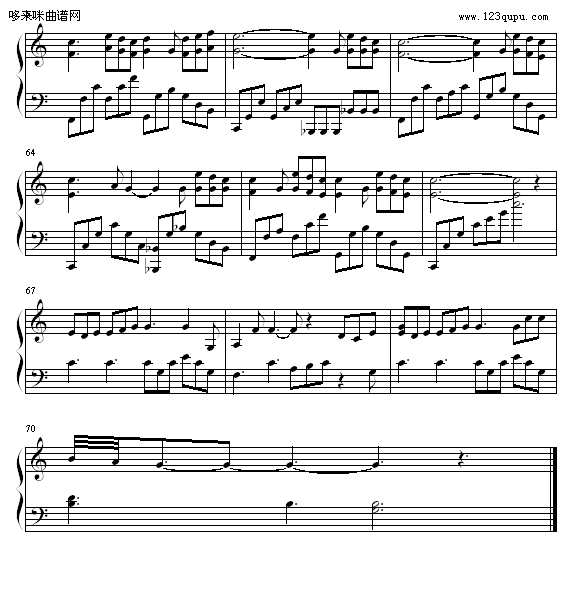 哆来咪曲谱网
www.123qupu.com
64
67
70